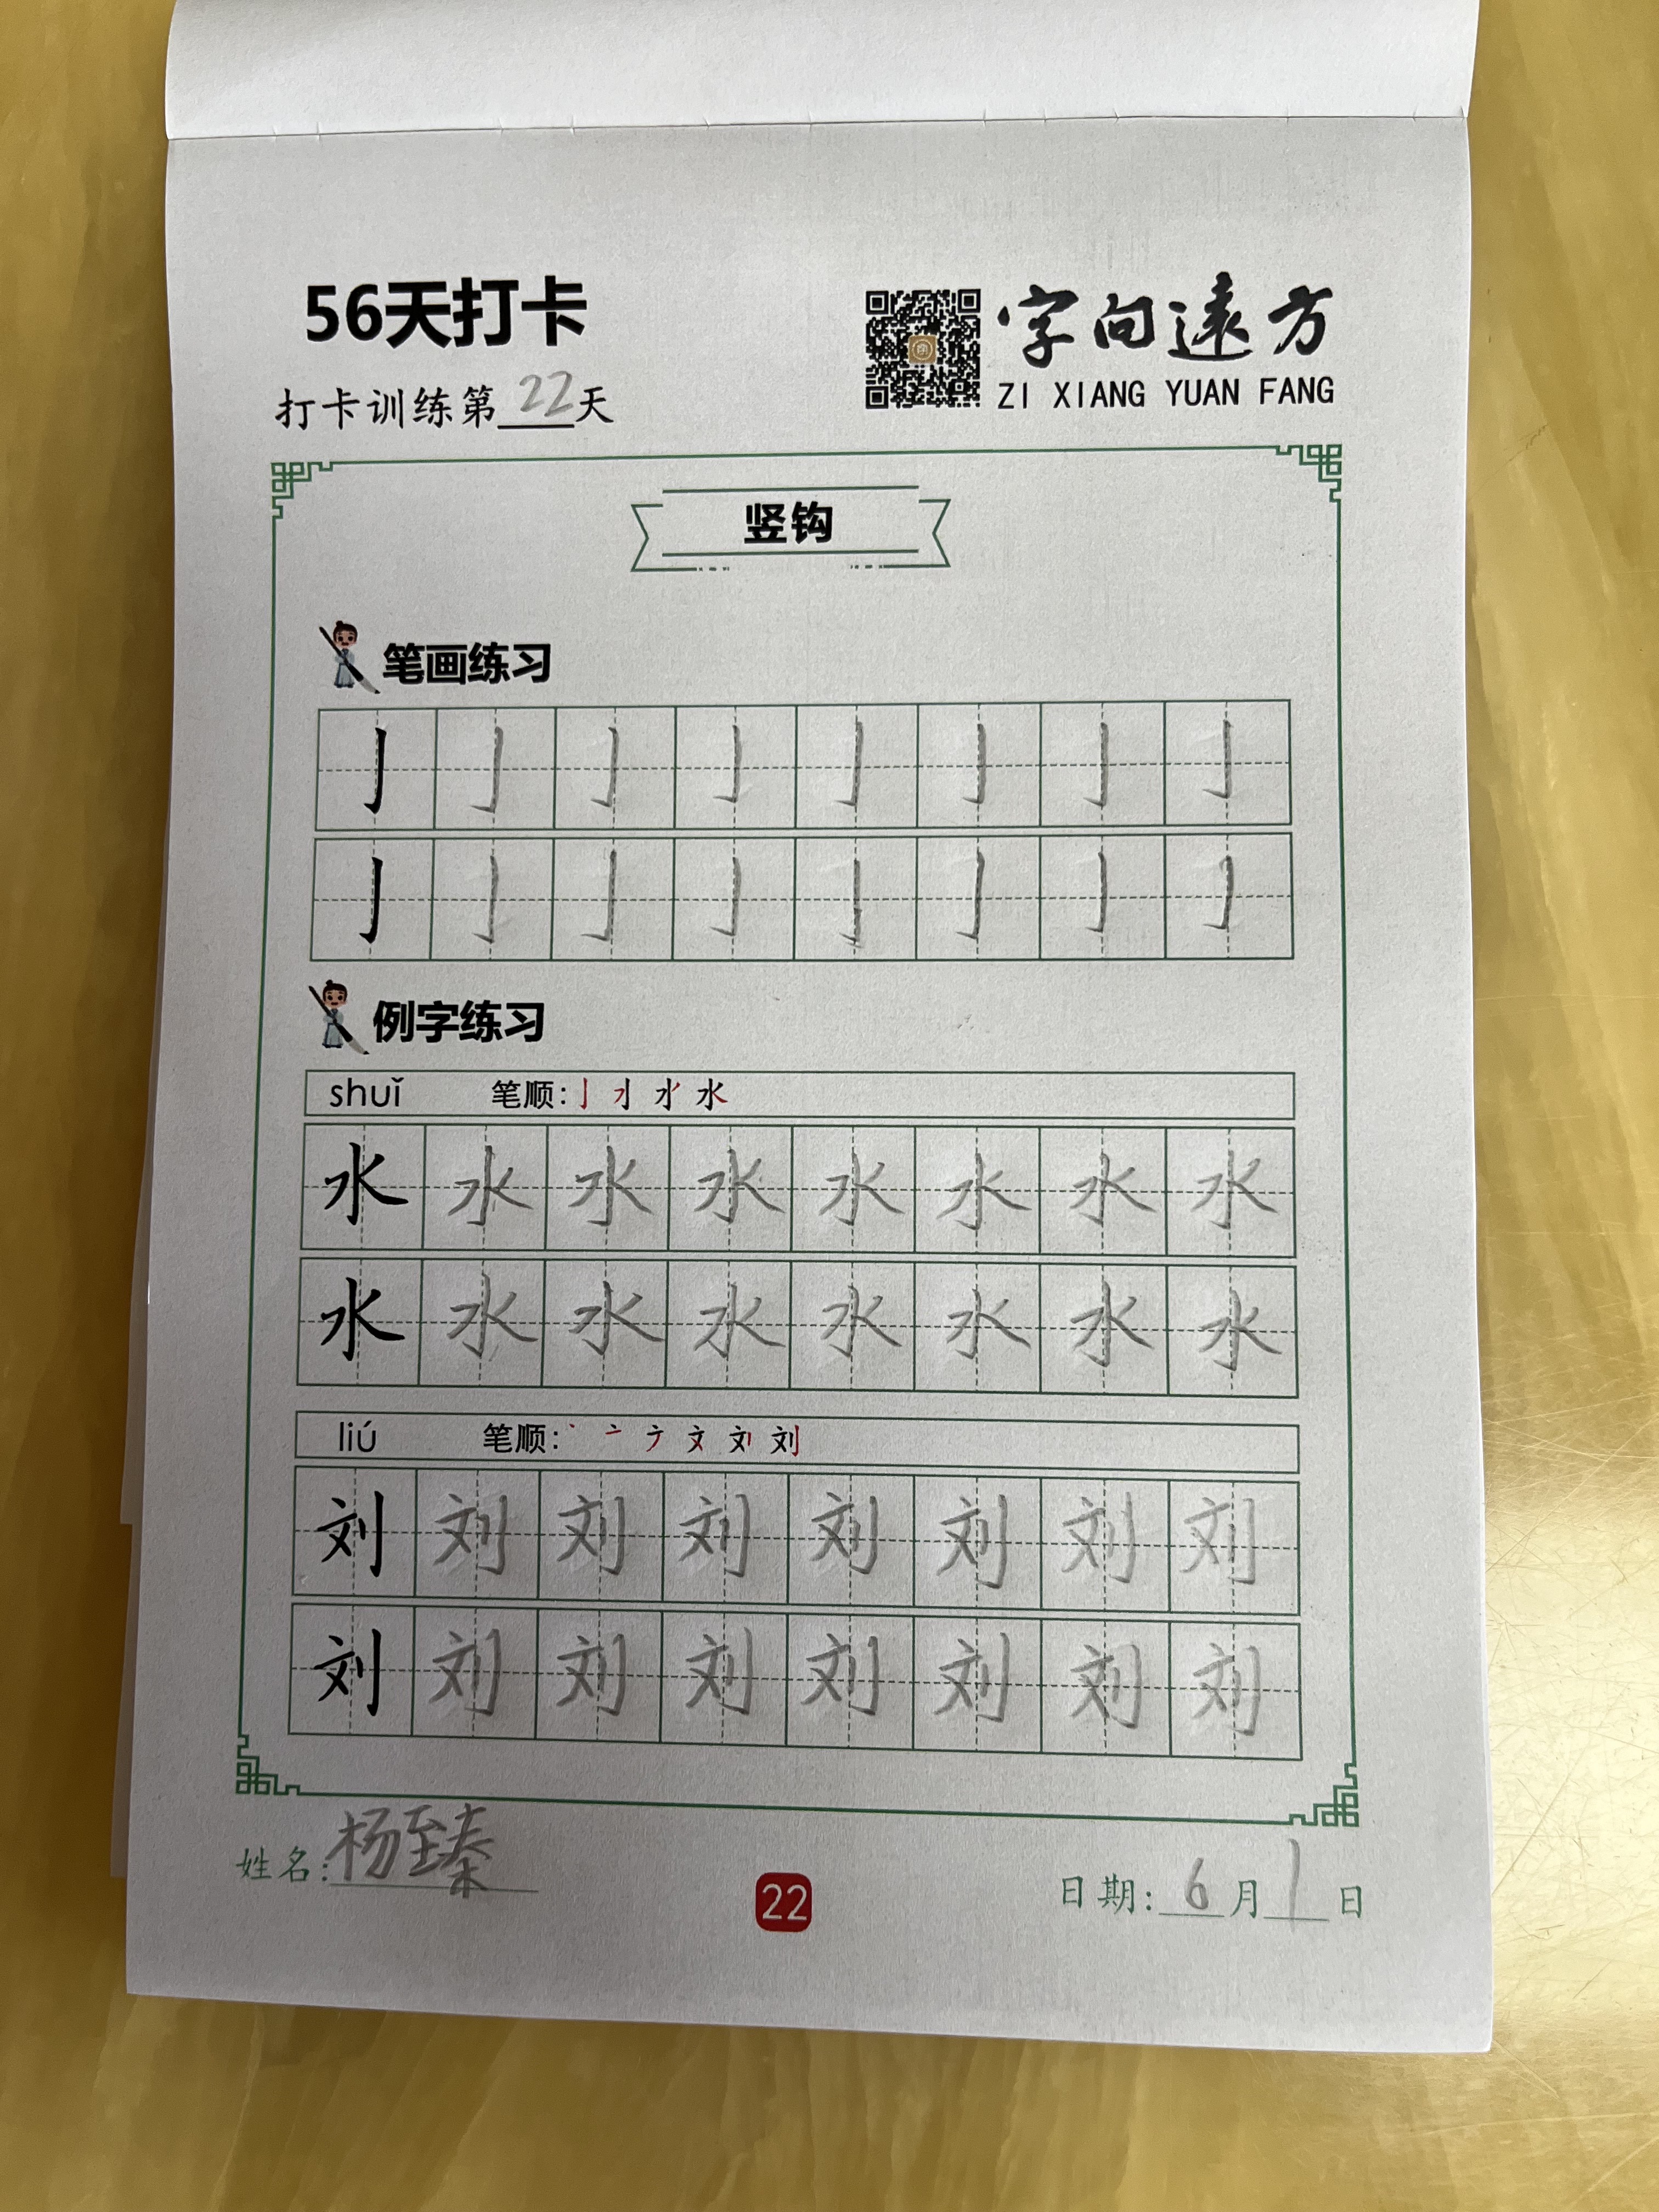 56天打卡
字向遠方
ZI XIANG YUAN FANG
打卡训练第22天
竖钩
笔画练习
亅 亅 亅 亅 亅 亅 亅 亅
亅 亅 亅 亅 亅 亅 亅 亅
例字练习
shuǐ 笔顺: 水
水 水 水 水 水 水 水 水
水 水 水 水 水 水 水 水
liú 笔顺: 刘
刘 刘 刘 刘 刘 刘 刘 刘
刘 刘 刘 刘 刘 刘 刘 刘
姓名:杨至臻
22
日期:6月1日